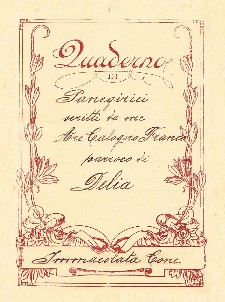 Quaderno
DI
Panegirici
scritti da me
Arc Calogero Franco
parroco di
Delia
Immacolata Conc.